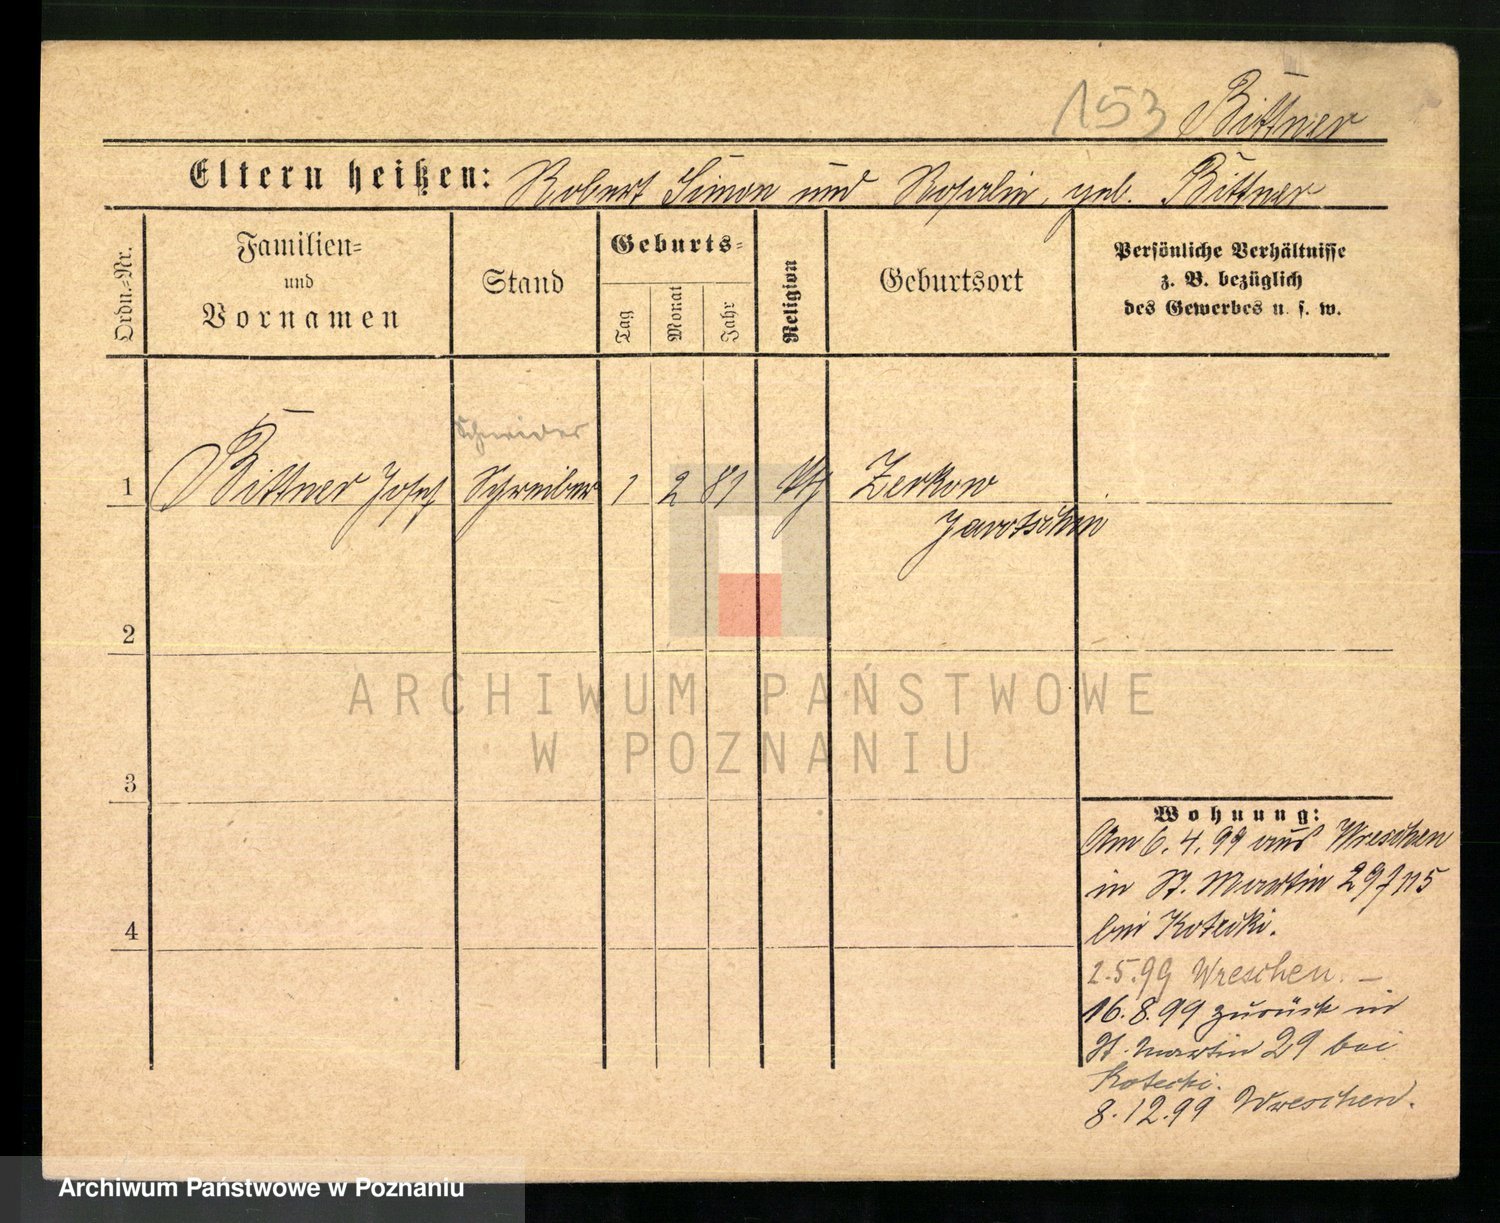 153 Bittner
Eltern heißen: Robert Simon und Rosalie, geb. Bittner
Ordn.-Nr.
Familien-
und
Vornamen
Stand
Geburts-
Tag
Monat
Jahr
Religion
Geburtsort
Persönliche Verhältnisse
z. B. bezüglich
des Gewerbes u. s. w.
Schneider
1 Bittner Josef Schreiber 1 2 81 Zerkow
Jarotschin
2
ARCHIWUM PAŃSTWOWE
W POZNANIU
3
Wohnung:
Am 6.4.99 aus Wreschen
in St. Martin 29
bei Kotecki.
4
2.5.99 Wreschen. –
16.8.99 zurück in
St. Martin 29 bei
Kotecki.
8.12.99 Wreschen.
Archiwum Państwowe w Poznaniu